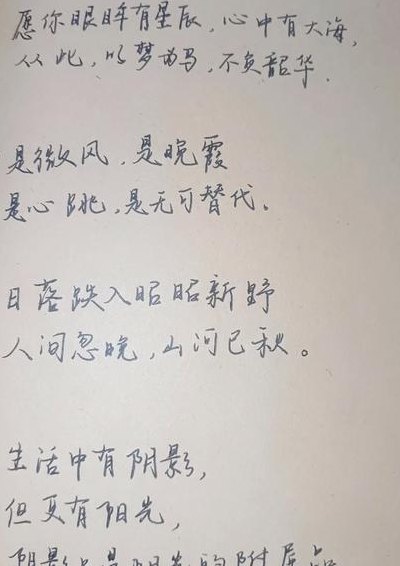 愿你眼眸有星辰，心中有大海，
从此，以梦为马，不负韶华．
是微风，是晚霞
是心跳，是无可替代。
日落跌入昭昭新野
人间忽晚，山河已秋。
生活中有阴影，
但更有阳光，
阴影只是阳光的附属品